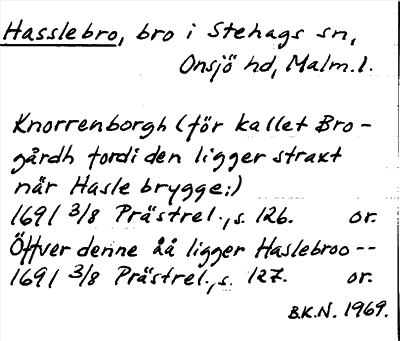 Hasslebro, bro i Stehags sn,
Onsjö hd, Malm.l.
Knorrenborgh (för kallet Bro-
gårdh fordi den ligger straxt
när Hasle brygge:)
1691 3/8 Prästrel., s. 126. or.
Öffver denne åå ligger Haslebroo --
1691 3/8 Prästrel., s. 127. or.
B.K.N. 1969.